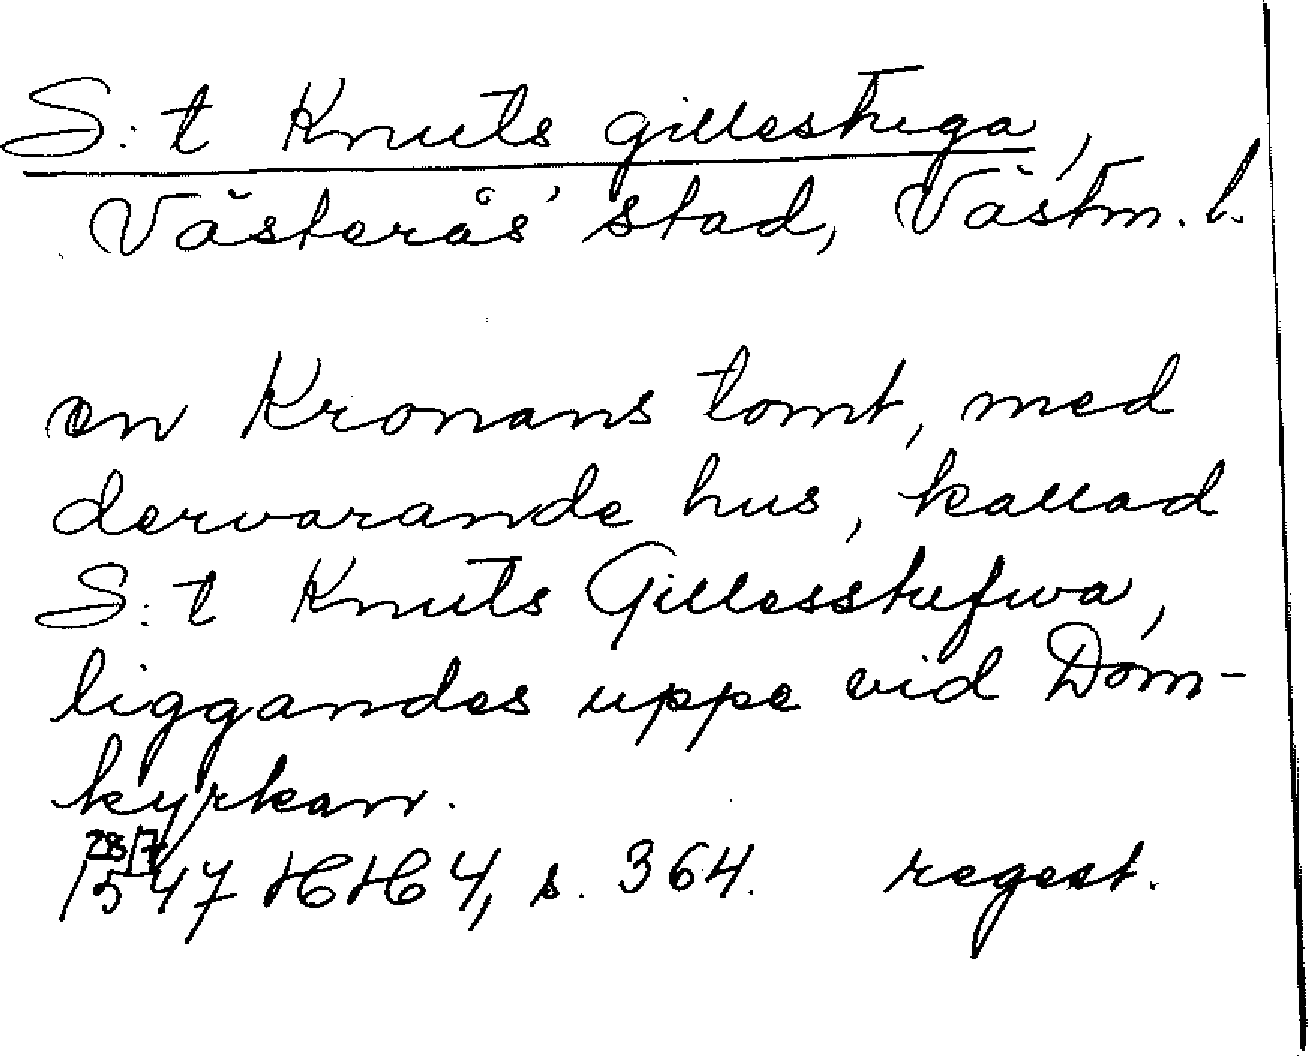 S:t Knuts gillestuga,
Västerås stad, Västm. l.
en Kronans tomt, med
dervarande hus, kallad
S:t Knuts Gillesstufwa,
liggandes uppe vid Dom-
kyrkan.
28/7
1547 HH 4, s. 364. regest.